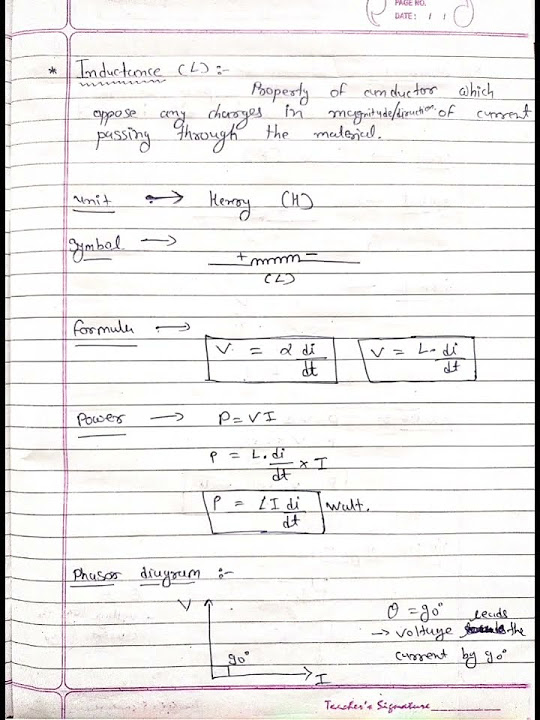 PAGE NO.
DATE: / /
* Inductance (L) :-
Property of conductor which
oppose any changes in magnitude/direction of current
passing through the material.
Unit → Henry (H)
Symbol →
+ −
(L)
formula → V = α di/dt V = L. di/dt
Power → P = VI
P = L. di/dt × I
P = LI di/dt Watt.
Phasor diagram :-
V
θ = 90°
leads
→ voltage the
current by 90°
90°
I
Teacher's Signature